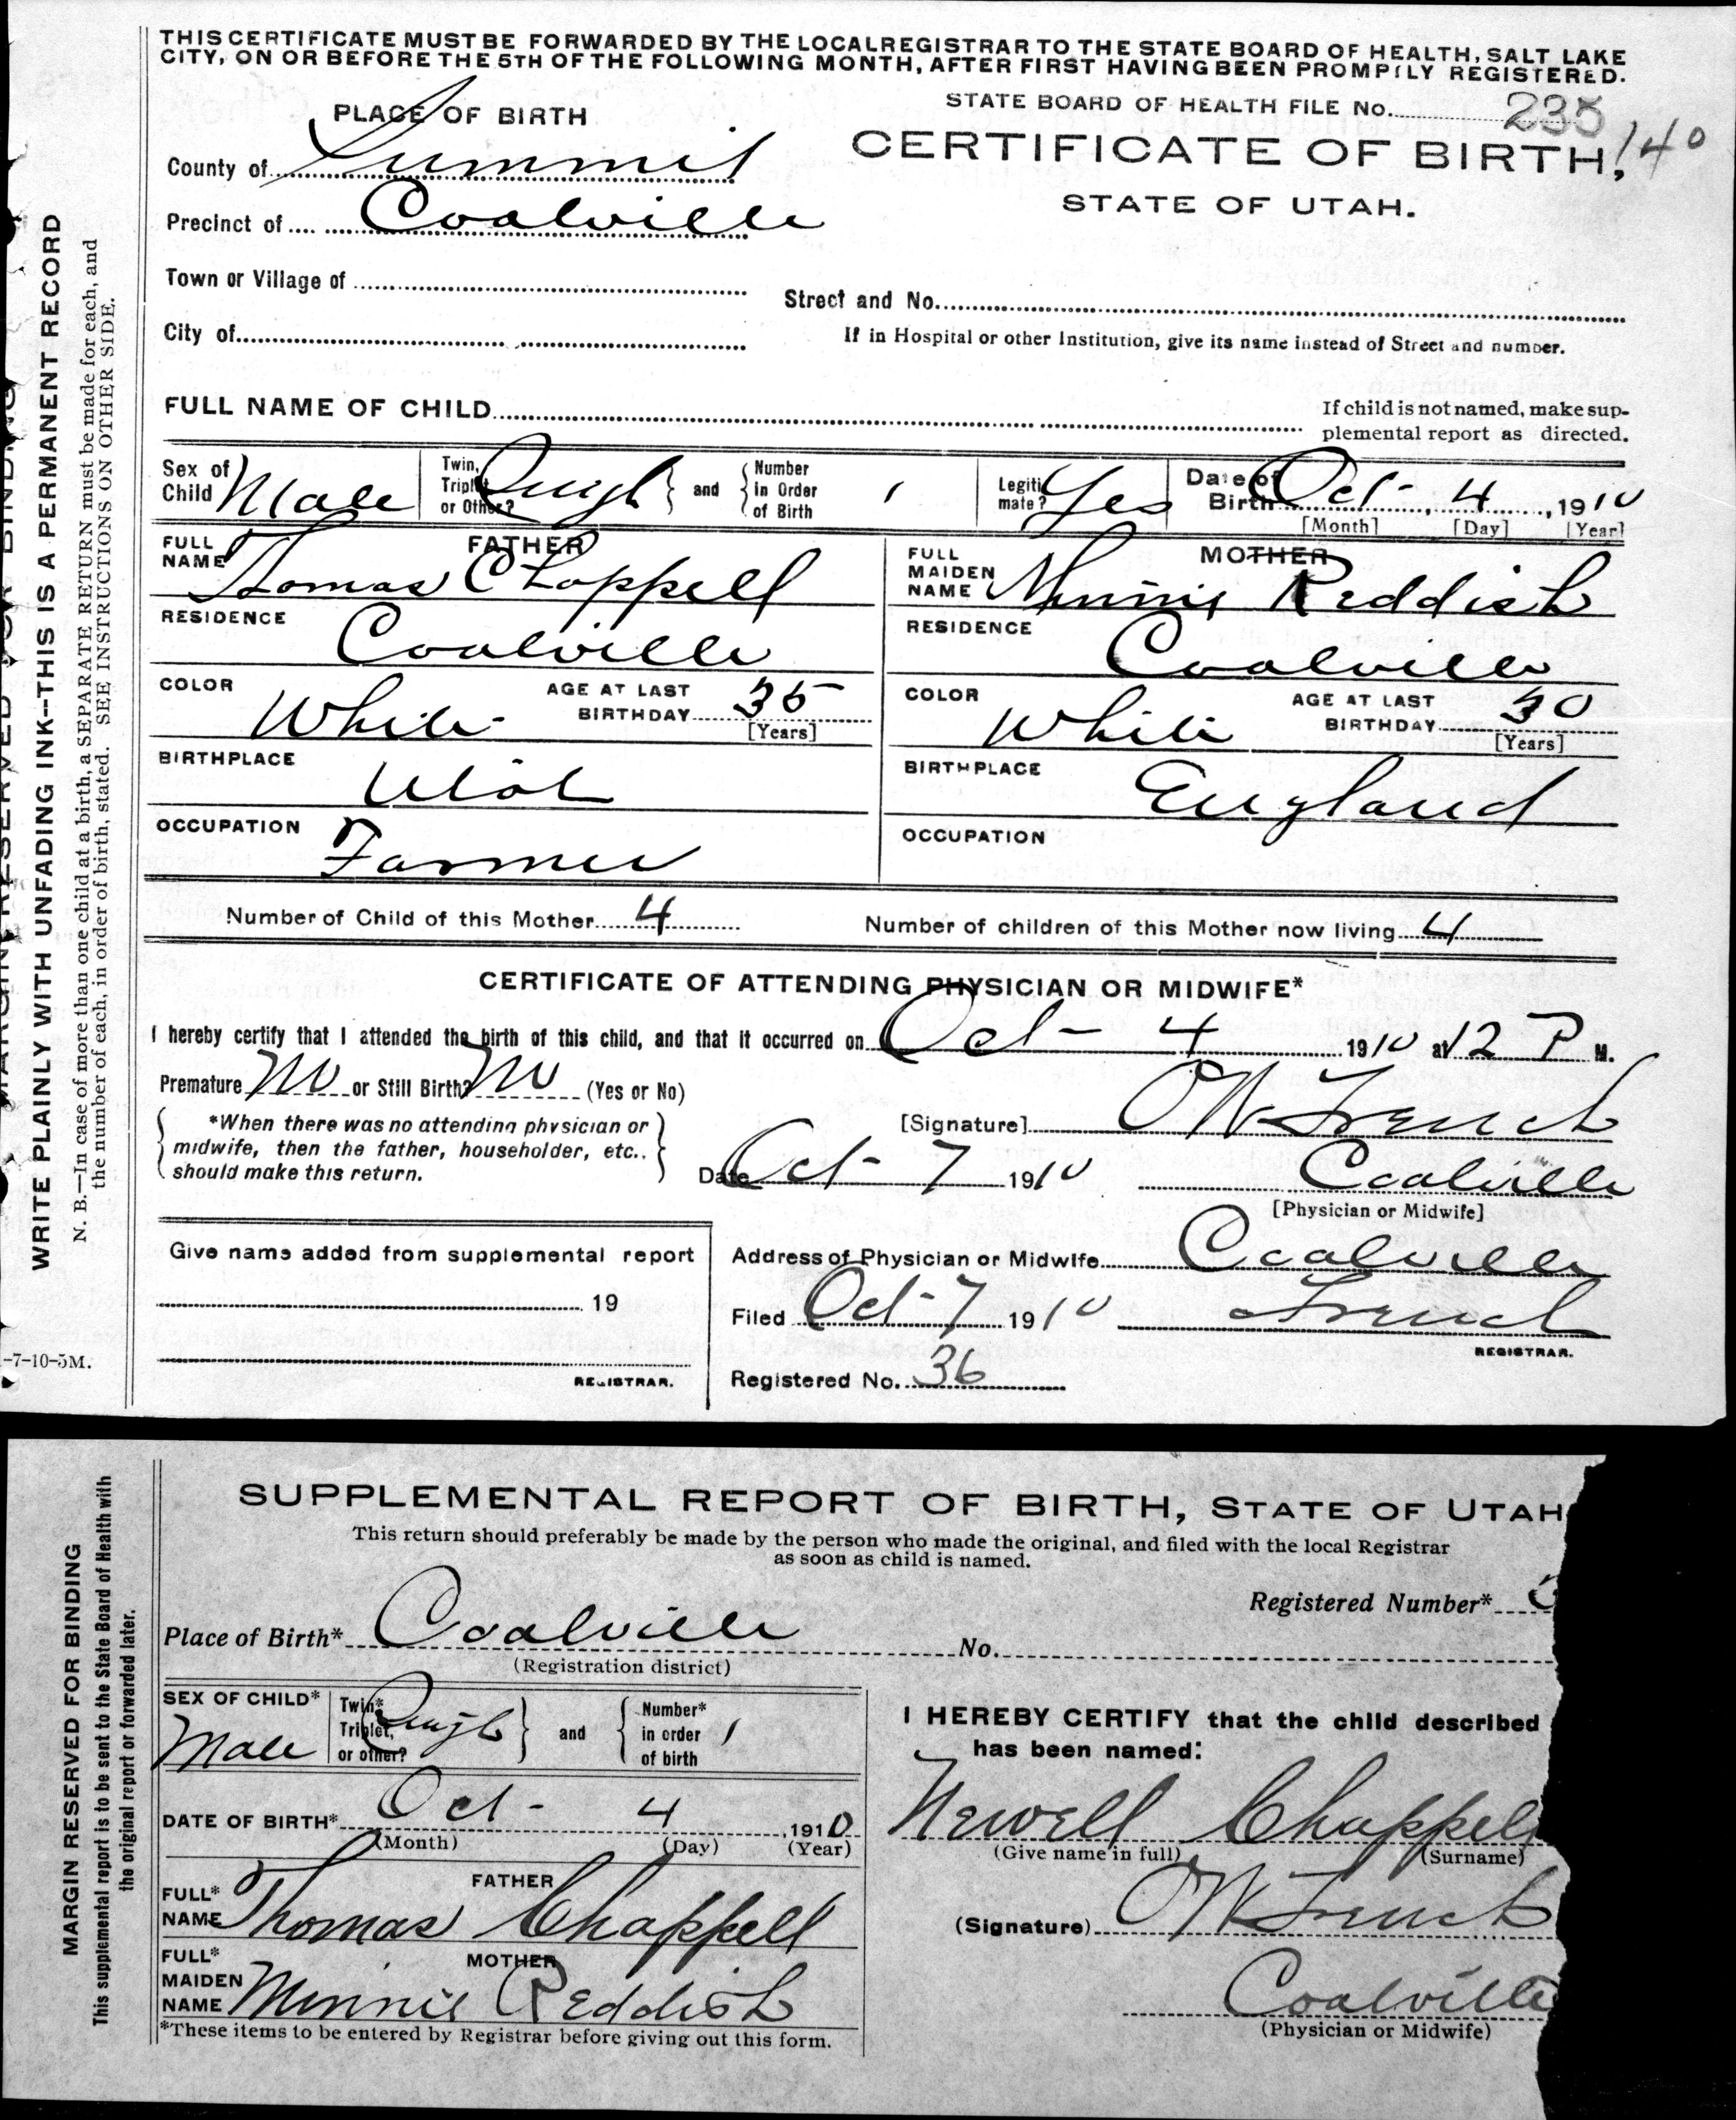 THIS CERTIFICATE MUST BE FORWARDED BY THE LOCAL REGISTRAR TO THE STATE BOARD OF HEALTH, SALT LAKE
CITY, ON OR BEFORE THE 5TH OF THE FOLLOWING MONTH, AFTER FIRST HAVING BEEN PROMPTLY REGISTERED.
STATE BOARD OF HEALTH FILE No. 235
140
PLACE OF BIRTH
CERTIFICATE OF BIRTH,
County of Summit
STATE OF UTAH.
Precinct of Coalville
Town or Village of
Street and No.
City of
If in Hospital or other Institution, give its name instead of Street and number.
FULL NAME OF CHILD
If child is not named, make sup-
plemental report as directed.
Sex of Child Male
Twin, Triplet or Other? and Number in Order of Birth 1
Legitimate? Yes
Date of Birth Oct- 4, 1910
[Month] [Day] [Year]
FATHER
FULL NAME Thomas Chappell
MOTHER
FULL MAIDEN NAME Minnie Reddish
RESIDENCE Coalville
RESIDENCE Coalville
COLOR White AGE AT LAST BIRTHDAY 35 [Years]
COLOR White AGE AT LAST BIRTHDAY 30 [Years]
BIRTHPLACE Utah
BIRTHPLACE England
OCCUPATION Farmer
OCCUPATION
Number of Child of this Mother 4
Number of children of this Mother now living 4
CERTIFICATE OF ATTENDING PHYSICIAN OR MIDWIFE*
I hereby certify that I attended the birth of this child, and that it occurred on Oct- 4 1910 at 12 P M.
Premature No or Still Birth? No (Yes or No)
*When there was no attending physician or
midwife, then the father, householder, etc..
should make this return.
[Signature] French
Date Oct- 7 1910 Coalville
[Physician or Midwife]
Give name added from supplemental report
19
REGISTRAR.
Address of Physician or Midwife Coalville
Filed Oct-7 1910 French
REGISTRAR.
Registered No. 36
WRITE PLAINLY WITH UNFADING INK--THIS IS A PERMANENT RECORD
N. B.—In case of more than one child at a birth, a SEPARATE RETURN must be made for each, and
the number of each, in order of birth, stated. SEE INSTRUCTIONS ON OTHER SIDE.
-7-10-5M.
SUPPLEMENTAL REPORT OF BIRTH, STATE OF UTAH
This return should preferably be made by the person who made the original, and filed with the local Registrar
as soon as child is named.
Registered Number*
Place of Birth* Coalville No.
(Registration district)
SEX OF CHILD* Male
Twin* Triplet, or other? and Number* in order of birth 1
DATE OF BIRTH* Oct- 4, 1910
(Month) (Day) (Year)
FATHER
FULL* NAME Thomas Chappell
MOTHER
FULL* MAIDEN NAME Minnie Reddish
*These items to be entered by Registrar before giving out this form.
I HEREBY CERTIFY that the child described
has been named:
Newell Chappell
(Give name in full) (Surname)
(Signature) French
Coalville
(Physician or Midwife)
MARGIN RESERVED FOR BINDING
This supplemental report is to be sent to the State Board of Health with
the original report or forwarded later.